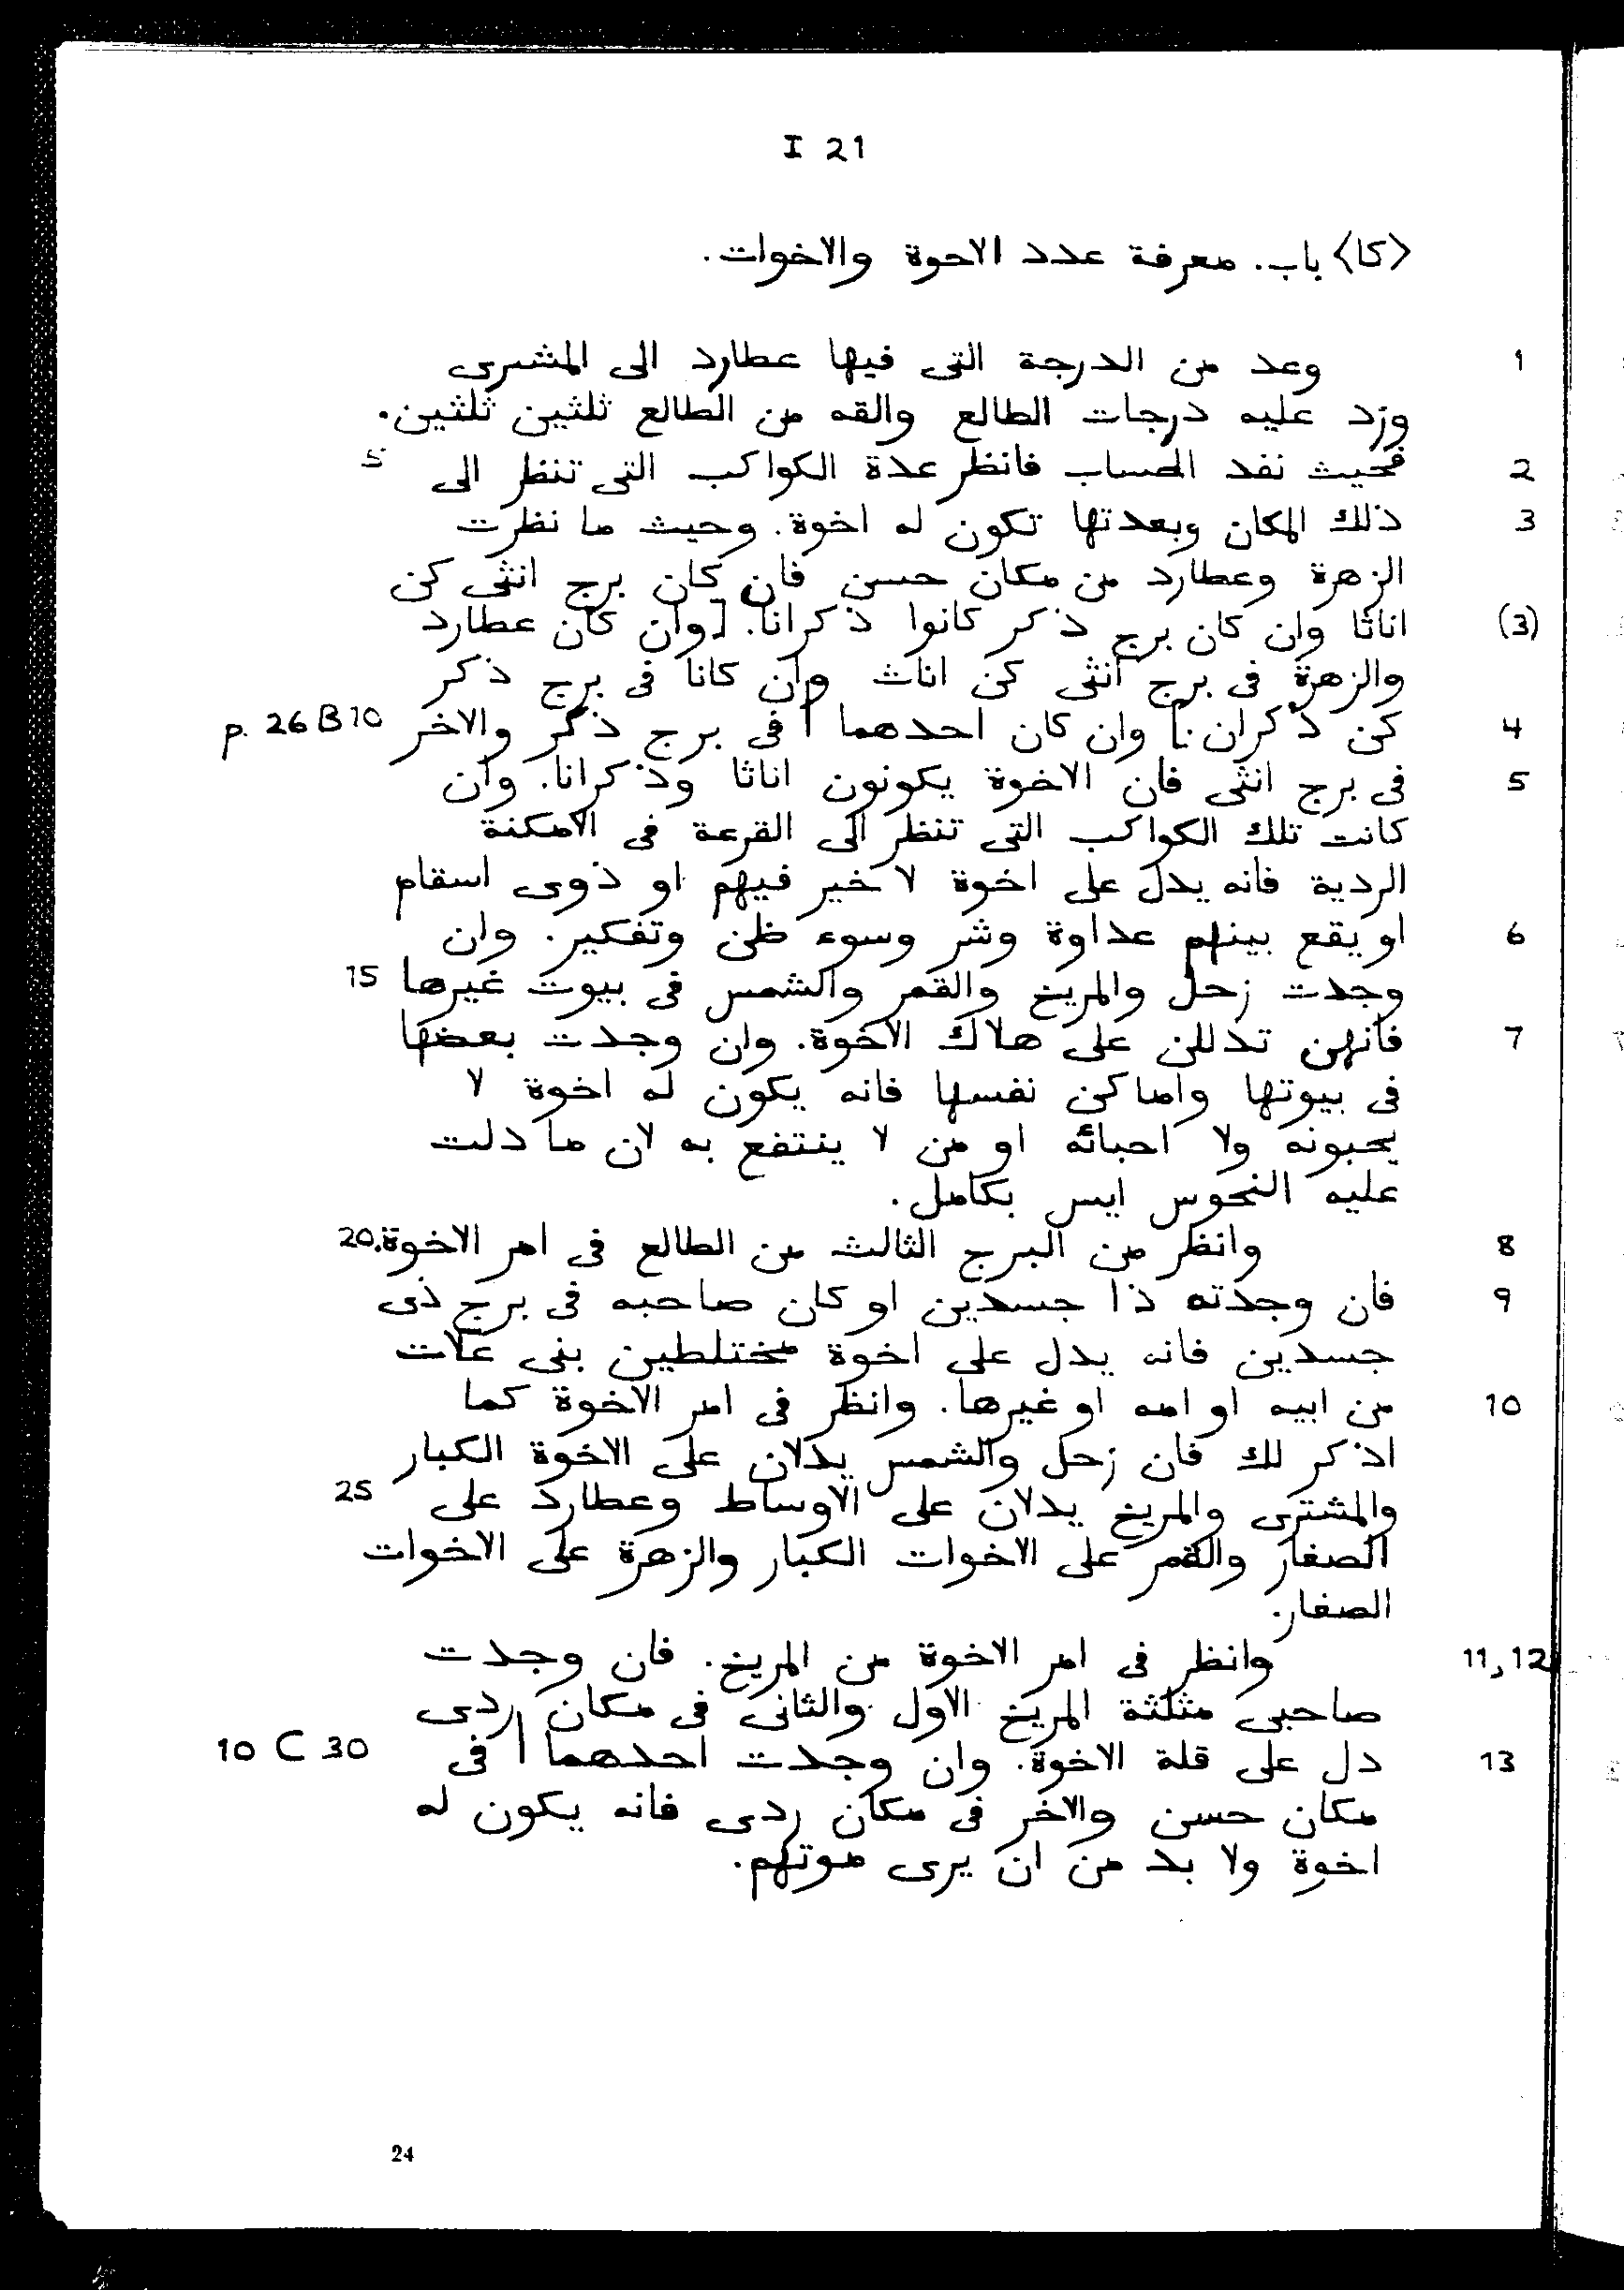 I 21
〈كا〉 باب. معرفة عدد الاحوة والاخوات.
1 وعد من الدرجة التى فيها عطارد الى المشرى
وزد عليه درجات الطالع والقه من الطالع ثلثين ثلثين.
2 فحيث نفد الحساب فانظر عدة الكواكب التى تنظر الى 5
3 ذلك المكان وبعدتها تكون له اخوة. وحيث ما نظرت
الزهرة وعطارد من مكان حسن فان كان برج انثى كن
(3) اناثا وان كان برج ذكر كانوا ذكرانا. [وان كان عطارد
والزهرة فى برج انثى كن اناث وان كانا فى برج ذكر
4 كن ذكران.] وان كان احدهما | فى برج ذكر والاخر p. 26 B 10
5 فى برج انثى فان الاخوة يكونون اناثا وذكرانا. وان
كانت تلك الكواكب التى تنظر الى القرعة فى الامكنة
الردية فانه يدل على اخوة لا خير فيهم او ذوى اسقام
6 او يقع بينهم عداوة وشر وسوء ظن وتفكير. وان
وجدت زحل والمريخ والقمر والشمس فى بيوت غيرها 15
7 فانهن تدللن على هلاك الاخوة. وان وجدت بعضها
فى بيوتها واماكن نفسها فانه يكون له اخوة لا
يحبونه ولا احبائه او من لا ينتفع به لان ما دلت
عليه النحوس ايس بكامل.
8 وانظر من البرج الثالث من الطالع فى امر الاخوة. 20
9 فان وجدته ذا جسدين او كان صاحبه فى برج ذى
جسدين فانه يدل على اخوة مختلطين بنى علات
10 من ابيه او امه او غيرها. وانظر فى امر الاخوة كما
اذكر لك فان زحل والشمس يدلان على الاخوة الكبار
والمشترى والمريخ يدلان على الاوساط وعطارد على 25
الصغار والقمر على الاخوات الكبار والزهرة على الاخوات
الصغار.
11, 12 وانظر فى امر الاخوة من المريخ. فان وجدت
صاحبى مثلثة المريخ الاول والثانى فى مكان ردى
13 دل على قلة الاخوة. وان وجدت احدهما | فى 10 C 30
مكان حسن والاخر فى مكان ردى فانه يكون له
اخوة ولا بد من ان يرى موتهم.
24